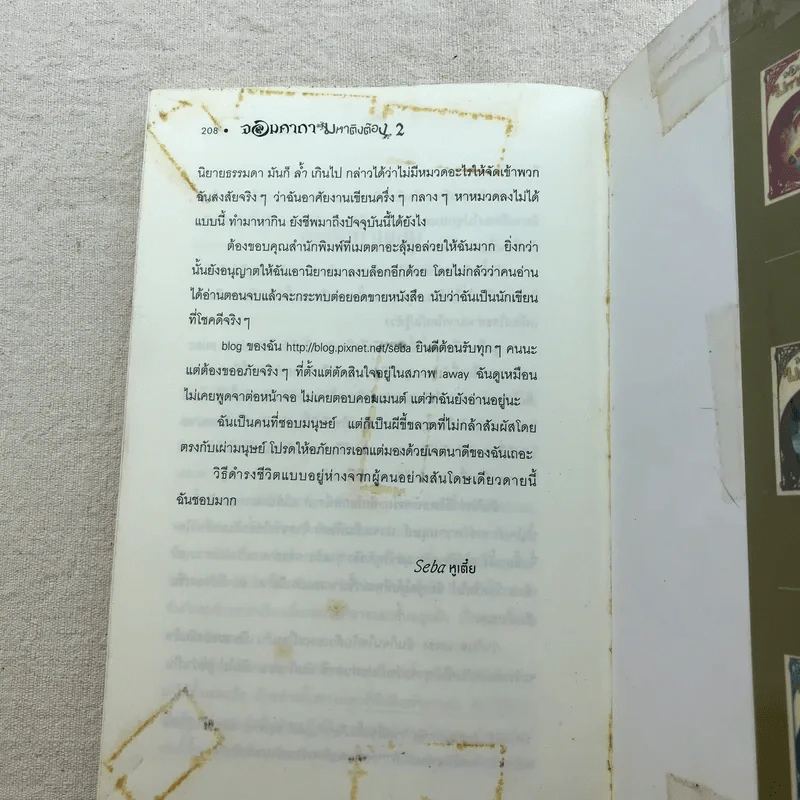 208 • จอมคาถามหาติงต๊อง 2
นิยายธรรมดา มันก็ ล้ำ เกินไป กล่าวได้ว่าไม่มีหมวดอะไรให้จัดเข้าพวก
ฉันสงสัยจริง ๆ ว่าฉันอาศัยงานเขียนครึ่ง ๆ กลาง ๆ หาหมวดลงไม่ได้
แบบนี้ ทำมาหากิน ยังชีพมาถึงปัจจุบันนี้ได้ยังไง
ต้องขอบคุณสำนักพิมพ์ที่เมตตาอะลุ้มอล่วยให้ฉันมาก ยิ่งกว่า
นั้นยังอนุญาตให้ฉันเอานิยายมาลงบล็อกอีกด้วย โดยไม่กลัวว่าคนอ่าน
ได้อ่านตอนจบแล้วจะกระทบต่อยอดขายหนังสือ นับว่าฉันเป็นนักเขียน
ที่โชคดีจริง ๆ
blog ของฉัน http://blog.pixnet.net/seba ยินดีต้อนรับทุก ๆ คนนะ
แต่ต้องขออภัยจริง ๆ ที่ตั้งแต่ตัดสินใจอยู่ในสภาพ away ฉันดูเหมือน
ไม่เคยพูดจาต่อหน้าจอ ไม่เคยตอบคอมเมนต์ แต่ว่าฉันยังอ่านอยู่นะ
ฉันเป็นคนที่ชอบมนุษย์ แต่ก็เป็นผีขี้ขลาดที่ไม่กล้าสัมผัสโดย
ตรงกับเผ่ามนุษย์ โปรดให้อภัยการเอาแต่มองด้วยเจตนาดีของฉันเถอะ
วิธีดำรงชีวิตแบบอยู่ห่างจากผู้คนอย่างสันโดษเดียวดายนี้
ฉันชอบมาก
Seba หูเตี๋ย